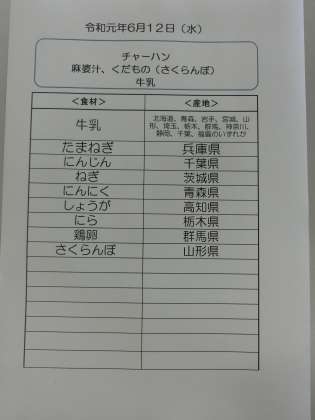 令和元年6月12日（水）
チャーハン
麻婆汁、くだもの（さくらんぼ）
牛乳
＜食材＞ ＜産地＞
牛乳 北海道、青森、岩手、宮城、山
形、埼玉、栃木、群馬、神奈川、
静岡、千葉、福島のいずれか
たまねぎ 兵庫県
にんじん 千葉県
ねぎ 茨城県
にんにく 青森県
しょうが 高知県
にら 栃木県
鶏卵 群馬県
さくらんぼ 山形県